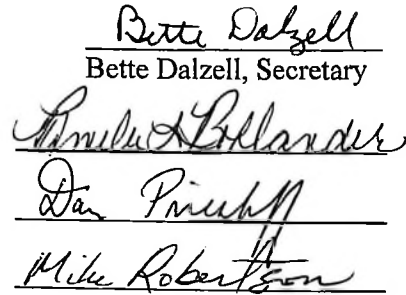 Bette Dalzell
Bette Dalzell, Secretary
Pamela L Bohlander
Dan
Mike Robertson